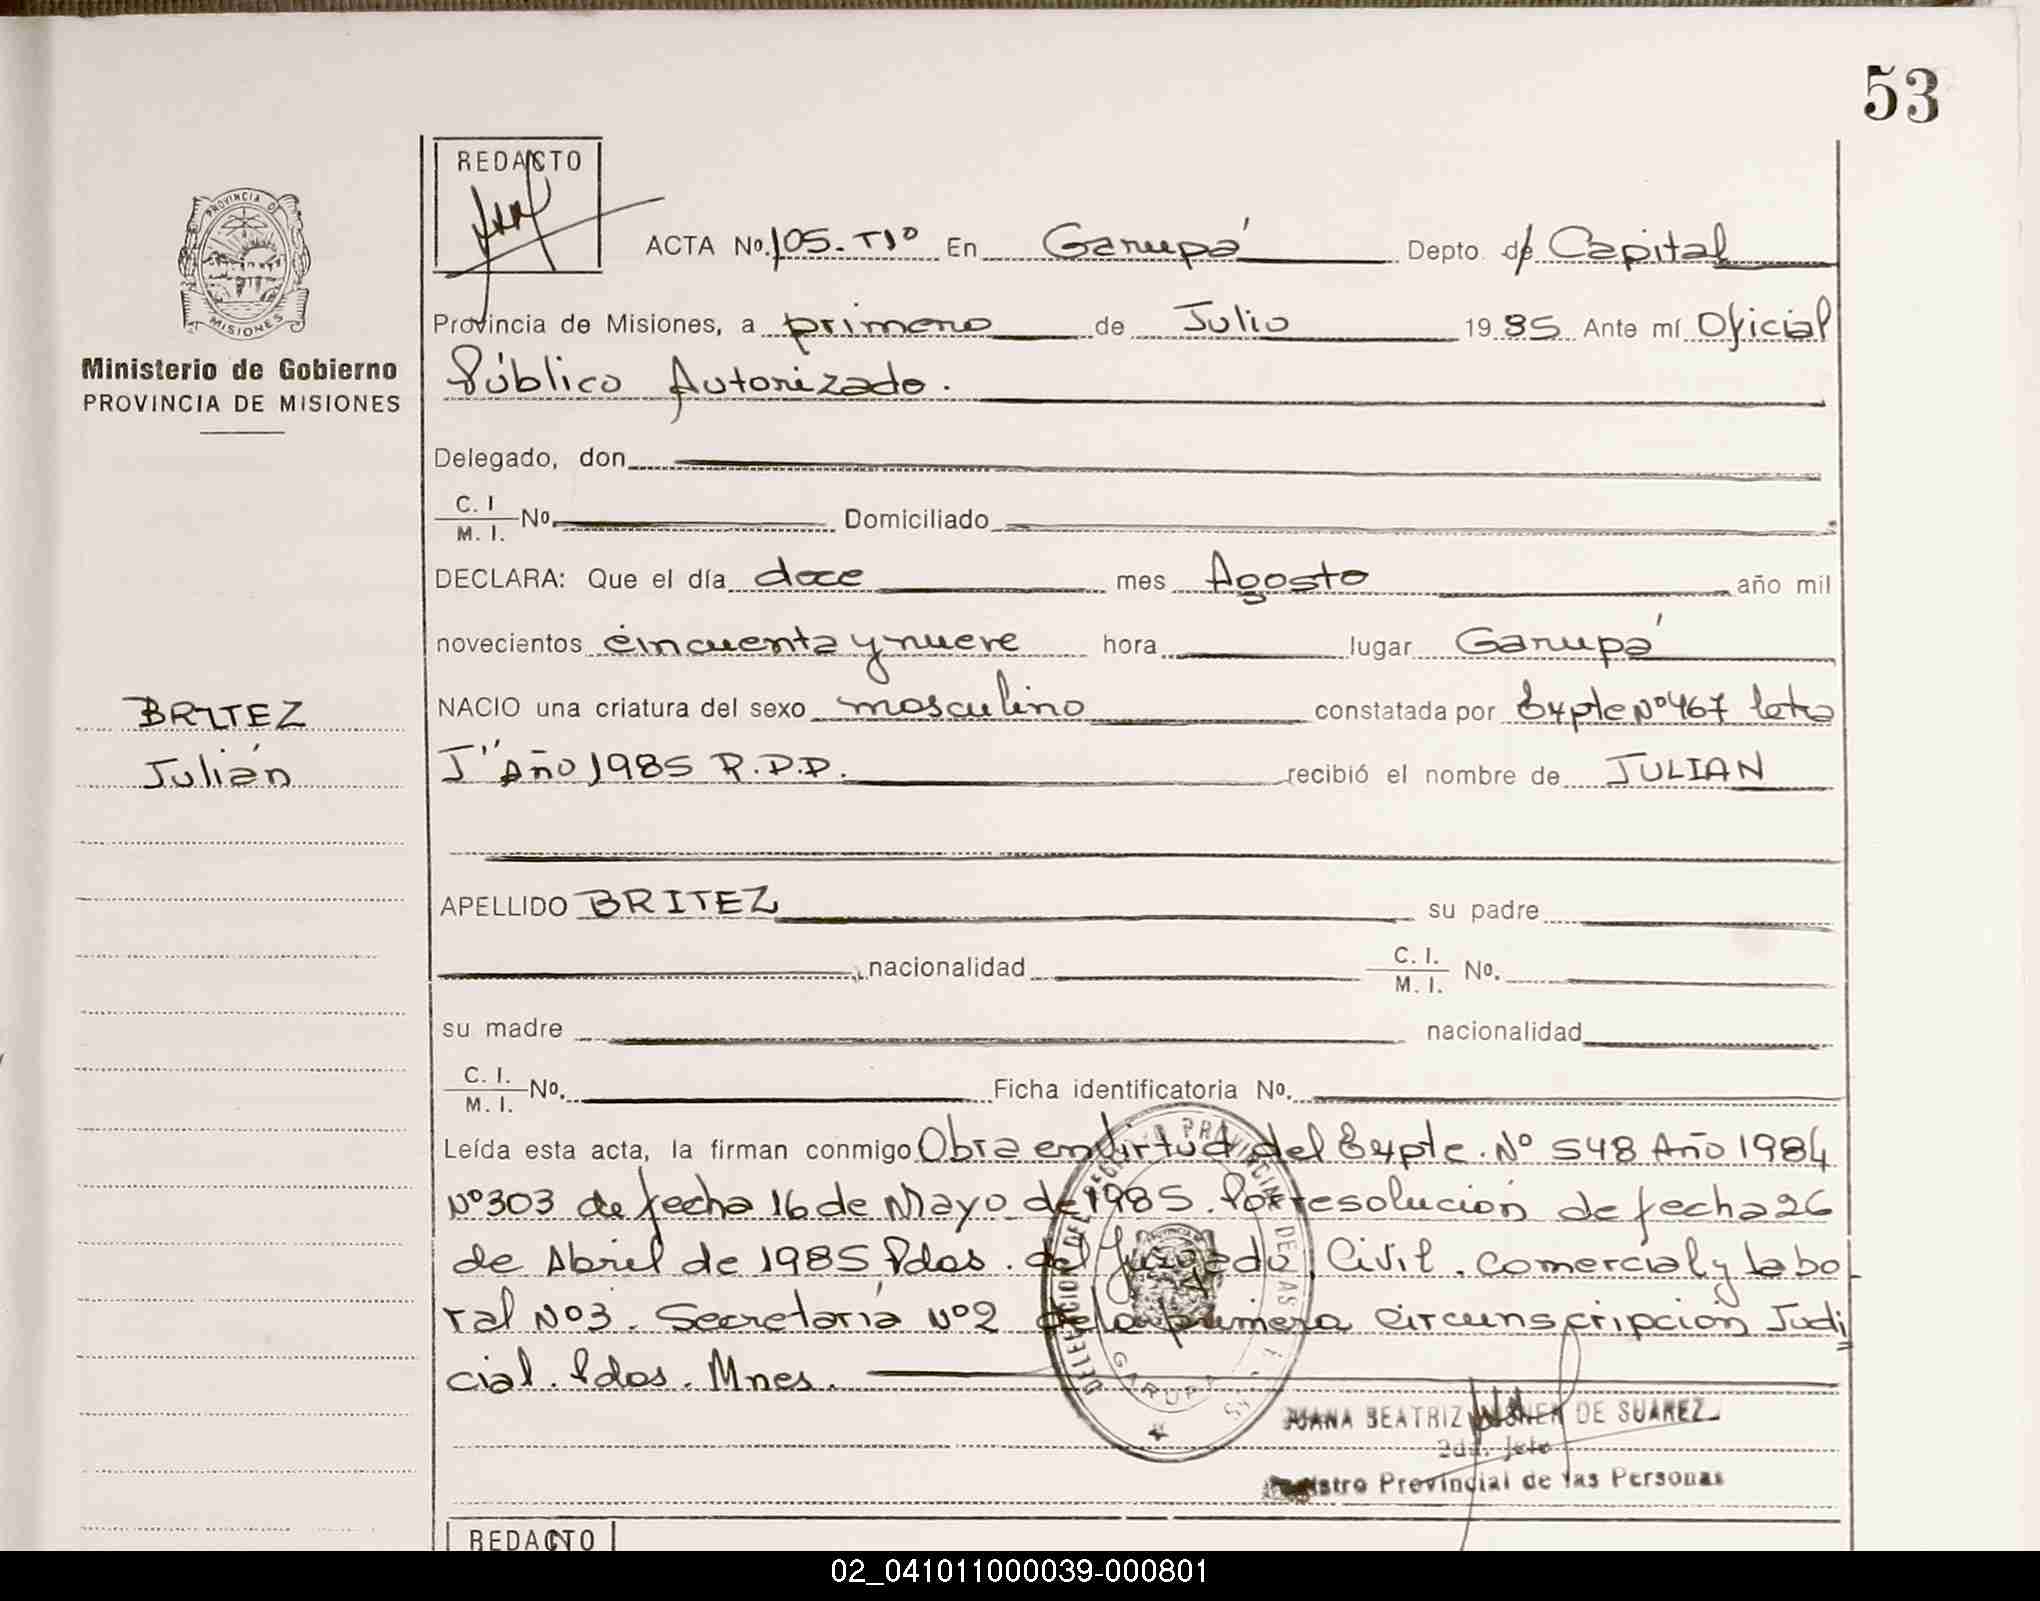 53
REDACTO
PROVINCIA DE
MISIONES
Ministerio de Gobierno
PROVINCIA DE MISIONES
ACTA No. 105-T1º En Garupá Depto. de Capital
Provincia de Misiones, a primero de Julio 1985 Ante mí Oficial
Público Autorizado.
Delegado, don
C. I
M. I. No. Domiciliado
DECLARA: Que el día doce mes Agosto año mil
novecientos cincuenta y nueve hora lugar Garupá
BRITEZ
Julián
NACIO una criatura del sexo masculino constatada por Expte Nº 467 letra
J" Año 1985 R.P.P. recibió el nombre de JULIAN
APELLIDO BRITEZ su padre
nacionalidad C. I.
M. I. No.
su madre nacionalidad
C. I.
M. I. No. Ficha identificatoria No.
Leída esta acta, la firman conmigo Obra en virtud del Expte. Nº 548 Año 1984
Nº 303 de fecha 16 de Mayo de 1985. Por resolución de fecha 26
de Abril de 1985 Pdas. del Juzgado Civil. Comercial y labo
ral Nº 3. Secretaría Nº 2 de la primera circunscripción Judi
cial. Pdas. Mnes.
DELEGACION DEL REGISTRO PROVINCIAL DE LAS
GARUPA
JUANA BEATRIZ DE SUAREZ
2da. Jefe
Registro Provincial de las Personas
REDACTO
02_041011000039-000801